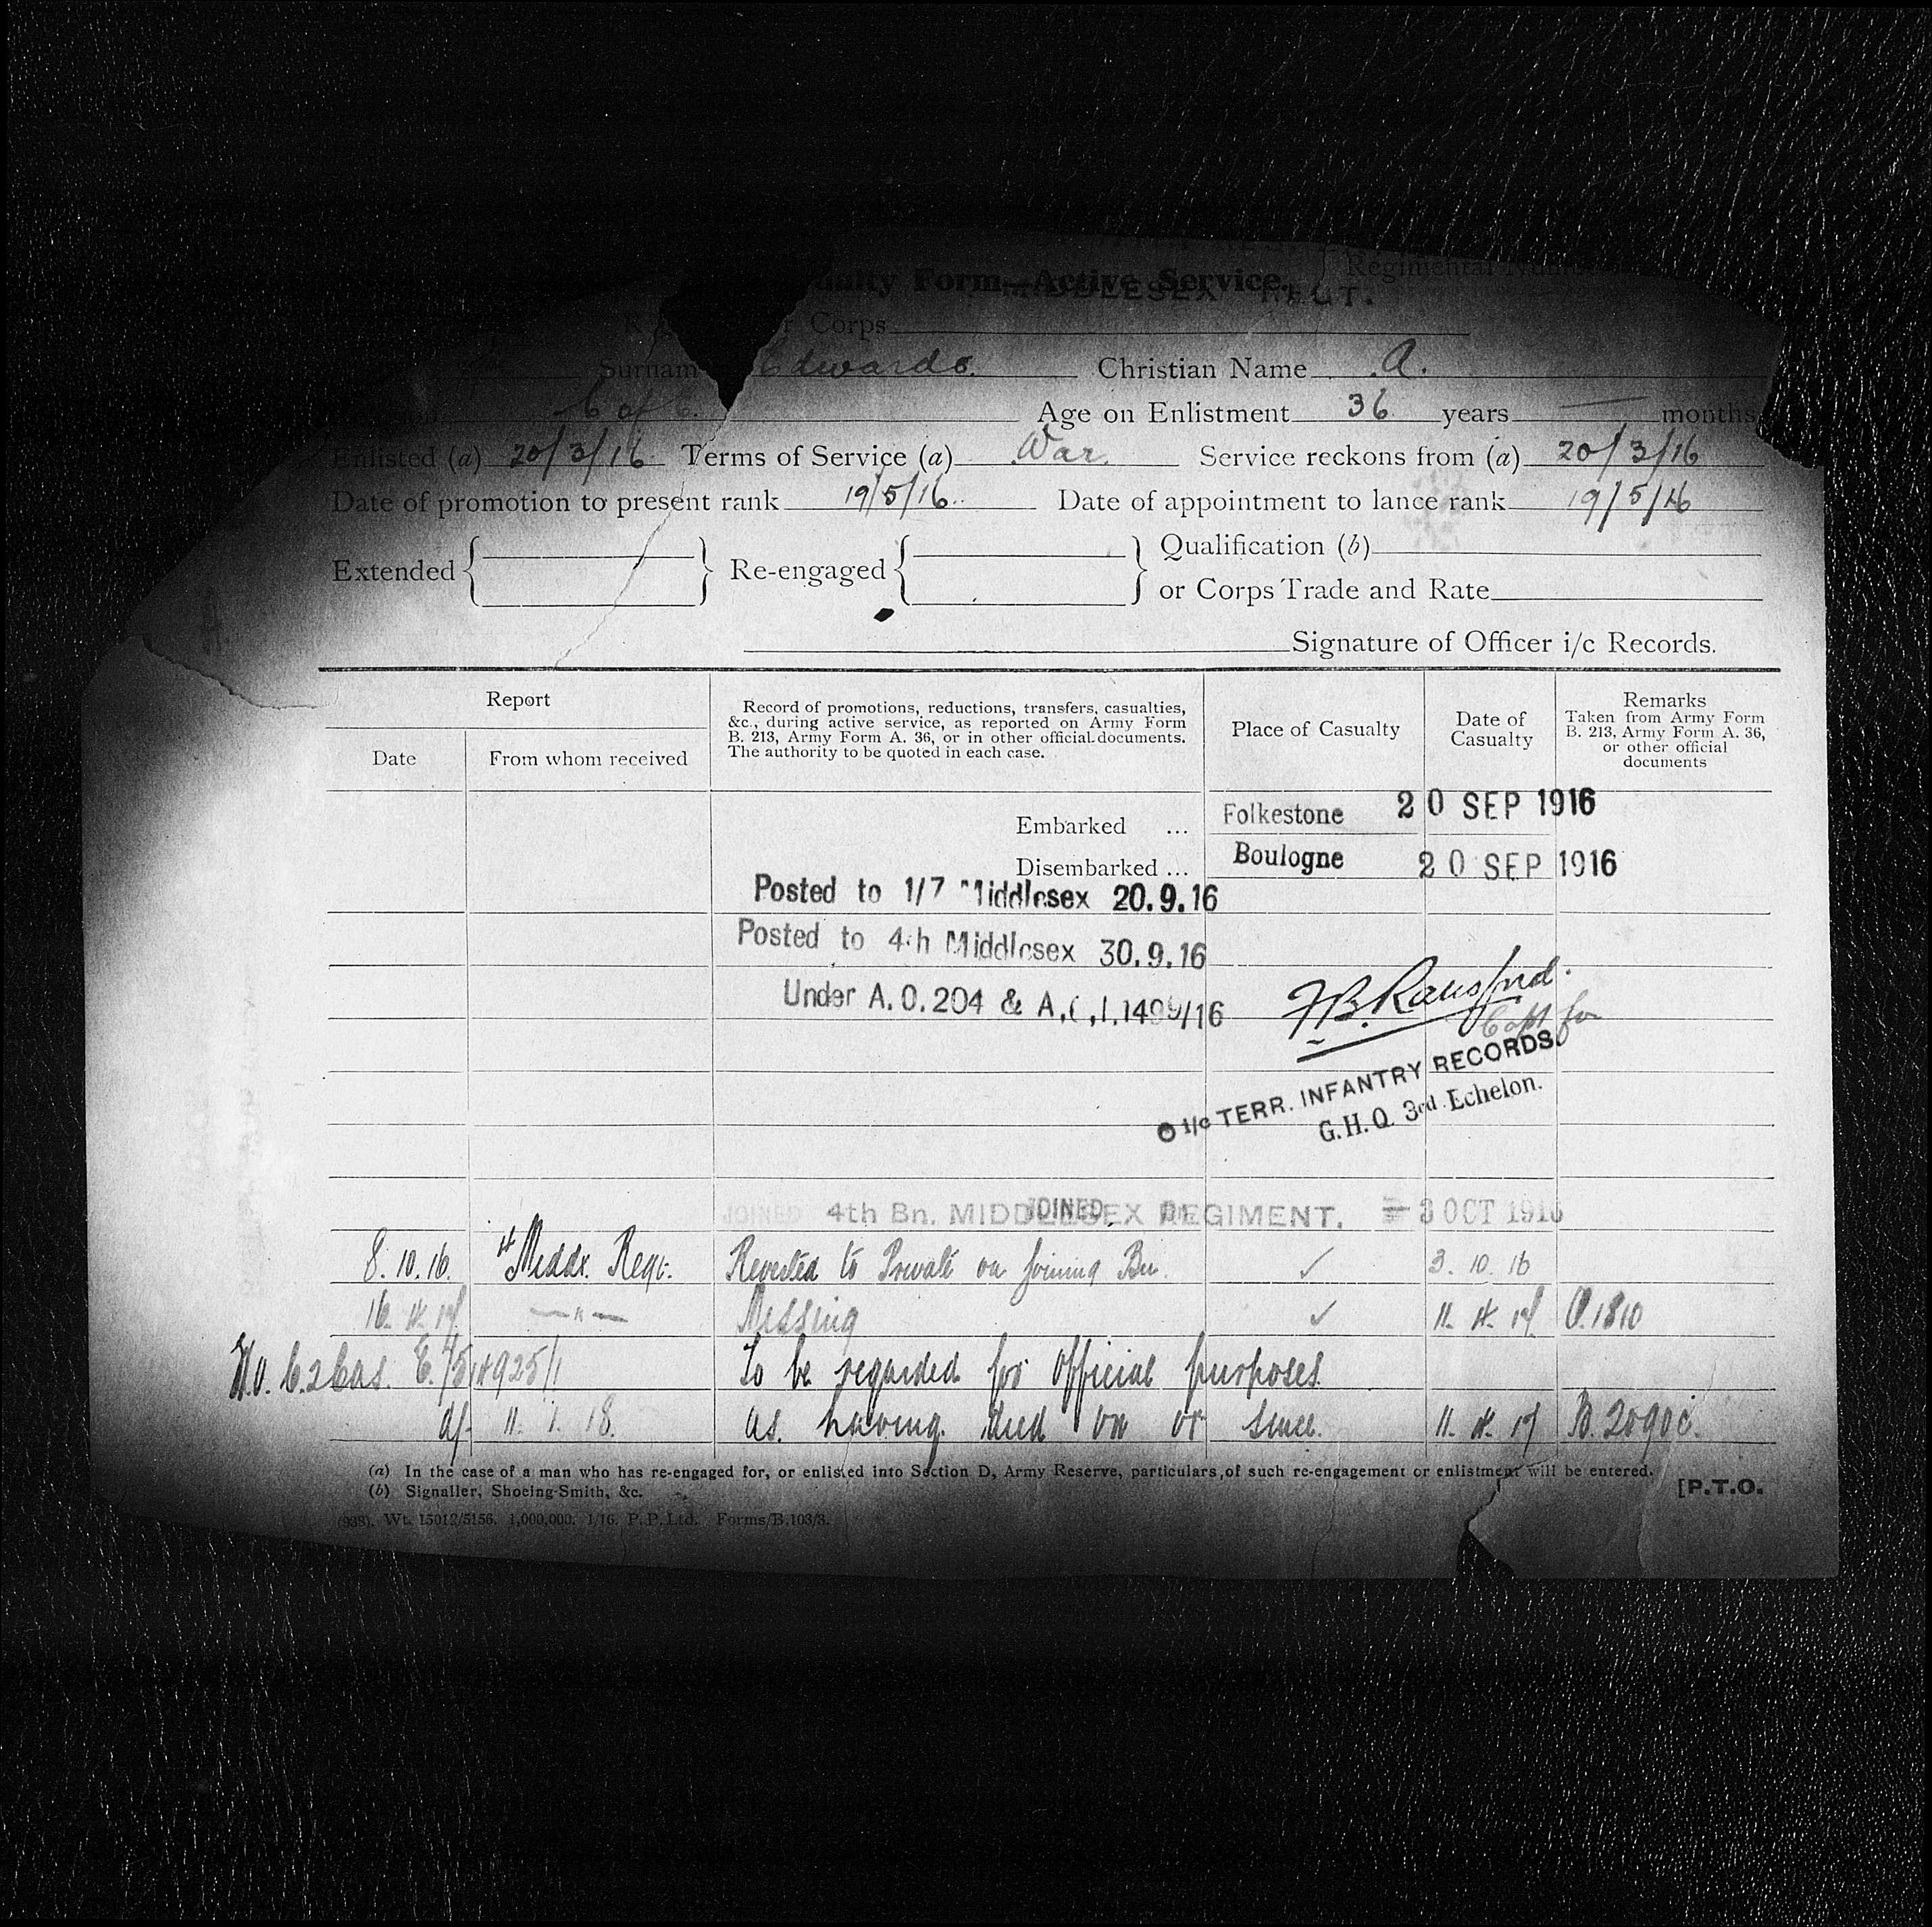 ualty Form—Active Service.
MIDDLESEX REGT.
Regimental
Corps
Surname Edwards. Christian Name A.
C of E. Age on Enlistment 36 years — months
Enlisted (a) 20/3/16 Terms of Service (a) War. Service reckons from (a) 20/3/16
Date of promotion to present rank 19/5/16. Date of appointment to lance rank 19/5/16
Extended Re-engaged Qualification (b)
or Corps Trade and Rate
Signature of Officer i/c Records.
Report
Date
From whom received
Record of promotions, reductions, transfers, casualties,
&c., during active service, as reported on Army Form
B. 213, Army Form A. 36, or in other official documents.
The authority to be quoted in each case.
Place of Casualty
Date of
Casualty
Remarks
Taken from Army Form
B. 213, Army Form A. 36,
or other official
documents
Embarked ... Folkestone 20 SEP 1916
Disembarked ... Boulogne 20 SEP 1916
Posted to 1/7 Middlesex 20.9.16
Posted to 4th Middlesex 30.9.16
Under A.O.204 & A.C.I.1499/16
F.B. Ransford.
Capt for
O i/c TERR. INFANTRY RECORDS.
G.H.Q. 3rd Echelon.
JOINED 4th Bn. MIDDLESEX REGIMENT. 3 OCT 1916
JOINED
8.10.16. 4 Middx. Regt. Reverted to Private on joining Bn. ✓ 3.10.16
16.4.17 —"— Missing ✓ 11.4.17 O.1810
W.O. C.2 Cas. E./514925/1 To be regarded for official purposes
df 11.1.18. as having died on or since. 11.4.17 B.2090c.
(a) In the case of a man who has re-engaged for, or enlisted into Section D, Army Reserve, particulars of such re-engagement or enlistment will be entered.
(b) Signaller, Shoeing-Smith, &c.
[P.T.O.
(938). Wt. 15012/5156. 1,000,000. 1/16. P.P.Ltd. Forms/B.103/3.